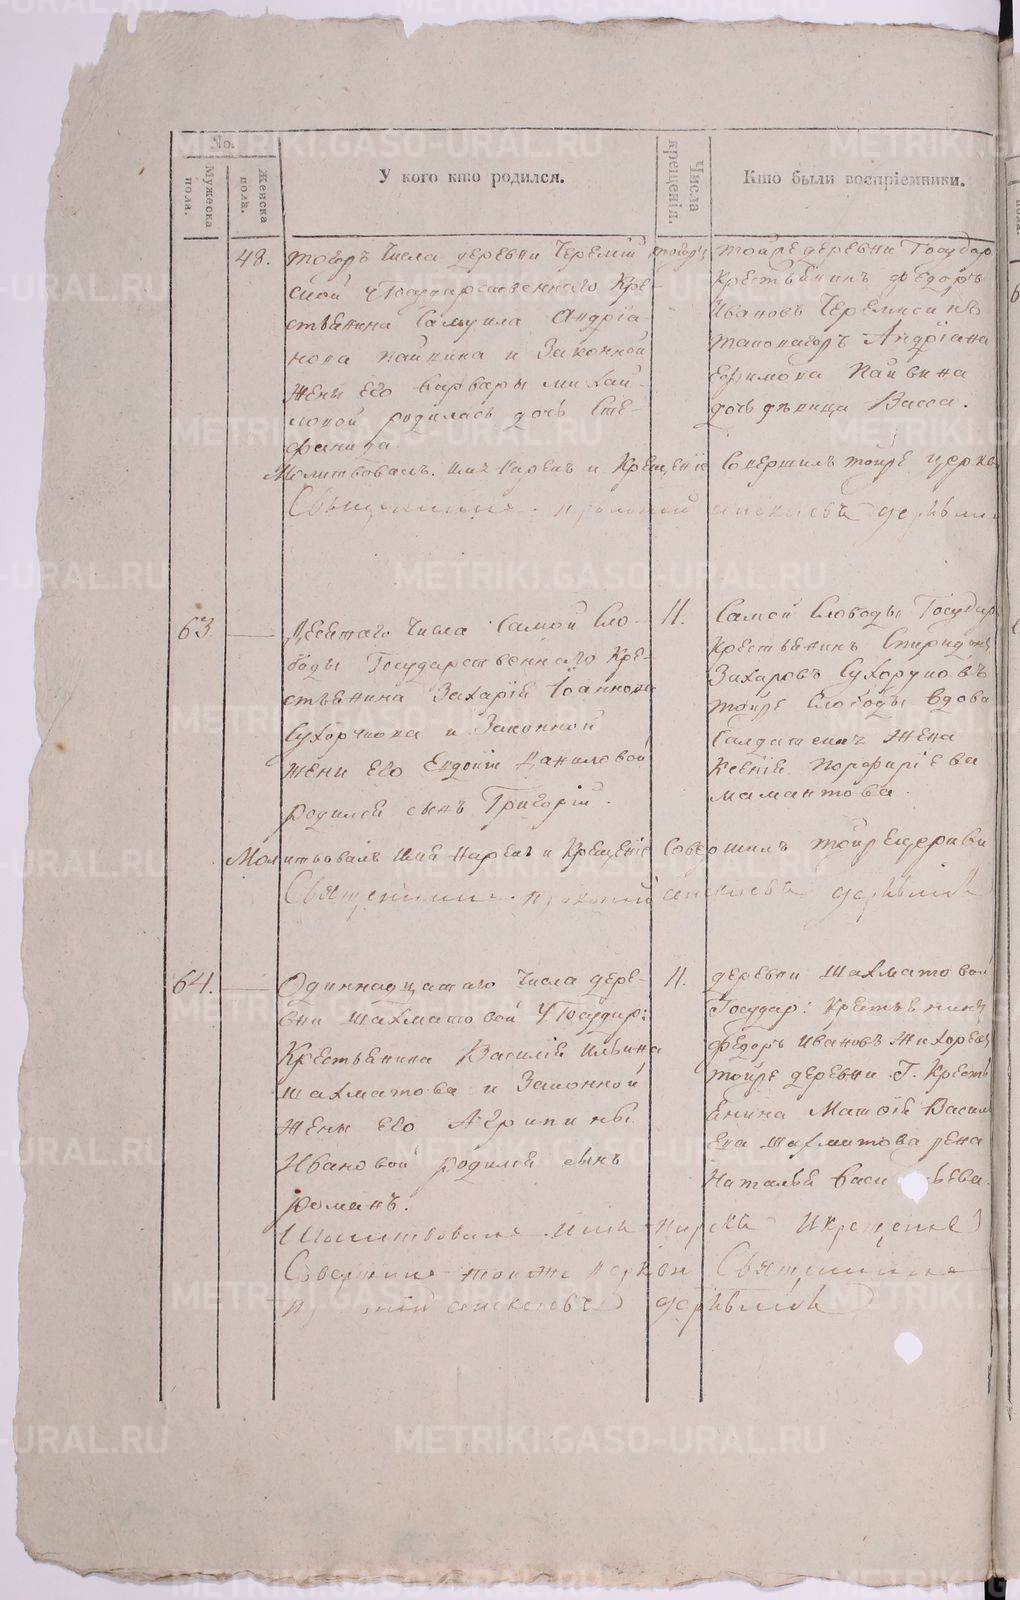 No.
Мужеска пола.
Женска пола.
У кого кто родился.
Числа крещенія.
Кто были воспріемники.
48.
тогожъ Числа деревни Черемій
ской у Государственнаго Кре-
стьянина Самуила Андріа
нова Пайвина и Законной
жены его Варвары михай-
ловой родилась дочь Сте-
фанида
тойже деревни Государ
Крестьянинъ Федоръ
Ивановъ Черемисинъ
Андріана
Ефимова Пайвина
дочь девица Васса.
Молитвовалъ. имя нарекъ и Крещеніе Совершилъ тойже церкви
Священникъ
63
Десятаго Числа Самой Сло-
боды Государственнаго Кре-
стьянина Захарія Іоаннова
и Законной
жены его Евдокіи Даниловой
родился сынъ Григорій.
11.
Самой Слободы Государ
Крестьянинъ Спиридонъ
Захаровъ Сухоруковъ
тойже Слободы вдова
жена
Ксенія Порфиріева
мамантова.
Молитвовалъ имя нарекъ и Крещеніе Совершилъ тойже церкви
Священникъ
64.
Одиннадцатаго Числа дере-
вни шахматовой у Государ:
Крестьянина Василія Ильина
шахматова и Законной
жены его Агрипины
Ивановой родился сынъ
романъ.
11.
деревни шахматовой
Государ: Крестьянинъ
федоръ Ивановъ Жихорев
тойже деревни Г. Кресть
янина Матфія Васил
ева шахматова жена
Наталья Васильева.
Молитвовалъ имя нарекъ и крещеніе
Совершилъ тойже церкви Священникъ
METRIKI.GASO-URAL.RU